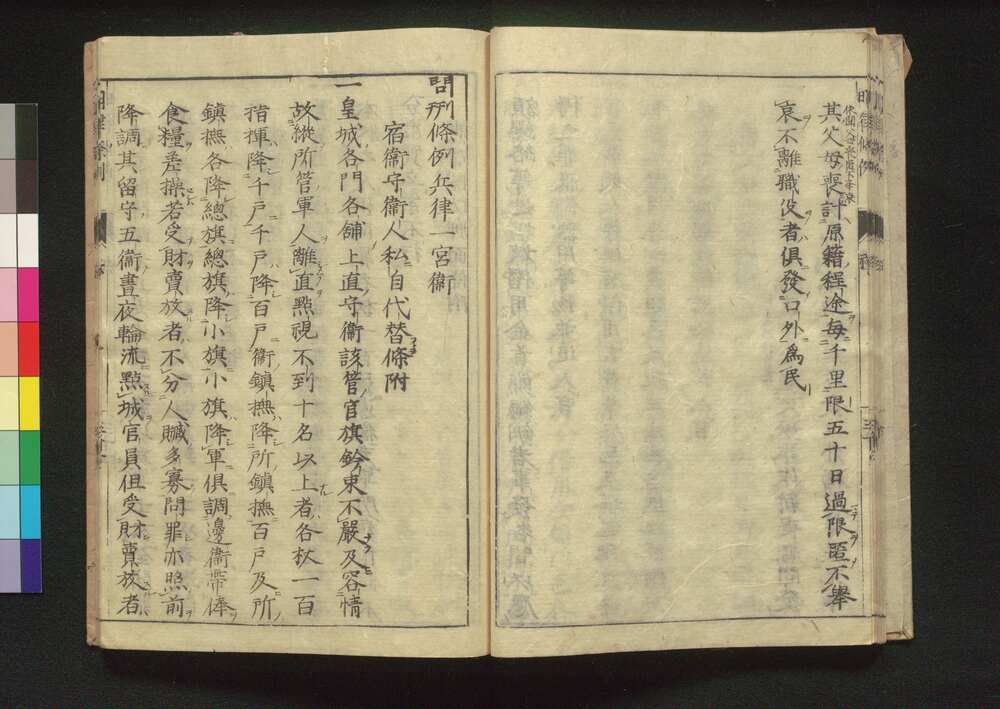 其父母喪計原籍程途每千里限五十日過限匿不舉
哀不離職役者俱發口外爲民
問刑條例兵律一宮衛
宿衛守衛人私自代替條附
一皇城各門各舖上直守衛該管官旗鈐束不嚴及容情
故縱所管軍人離直點視不到十名以上者各杖一百
指揮降千戶千戶降百戶衛鎮撫降所鎮撫百戶及所
鎮撫各降總旗總旗降小旗小旗降軍俱調邊衛帶俸
食糧差操若受財賣放者不分人贓多寡問罪亦照前
降調其留守五衛晝夜輪流點城官員但受財賣放者